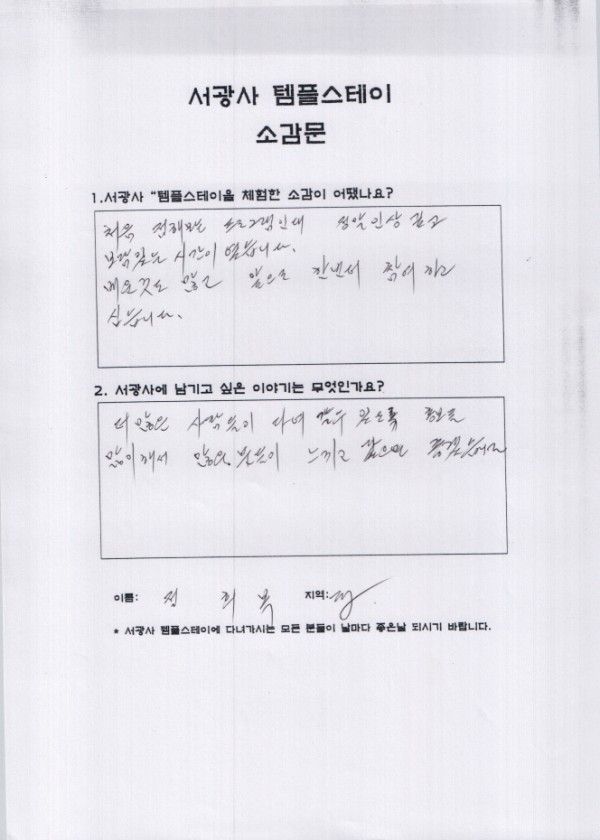 서광사 템플스테이
소감문
1.서광사 "템플스테이을 체험한 소감이 어땠나요?
처음 접해보는 프로그램인데 정말 인상 깊고
보람있는 시간이 였습니다.
배운것도 많고 앞으로 한번더 참여 하고
십습니다.
2. 서광사에 남기고 싶은 이야기는 무엇인가요?
더 많은 사람들이 다녀 갈수 있도록 홍보를
많이해서 많은 분들이 느끼고 갔으면 좋겠습니다
이름: 정 희 지역:
* 서광사 템플스테이에 다녀가시는 모든 분들이 날마다 좋은날 되시기 바랍니다.